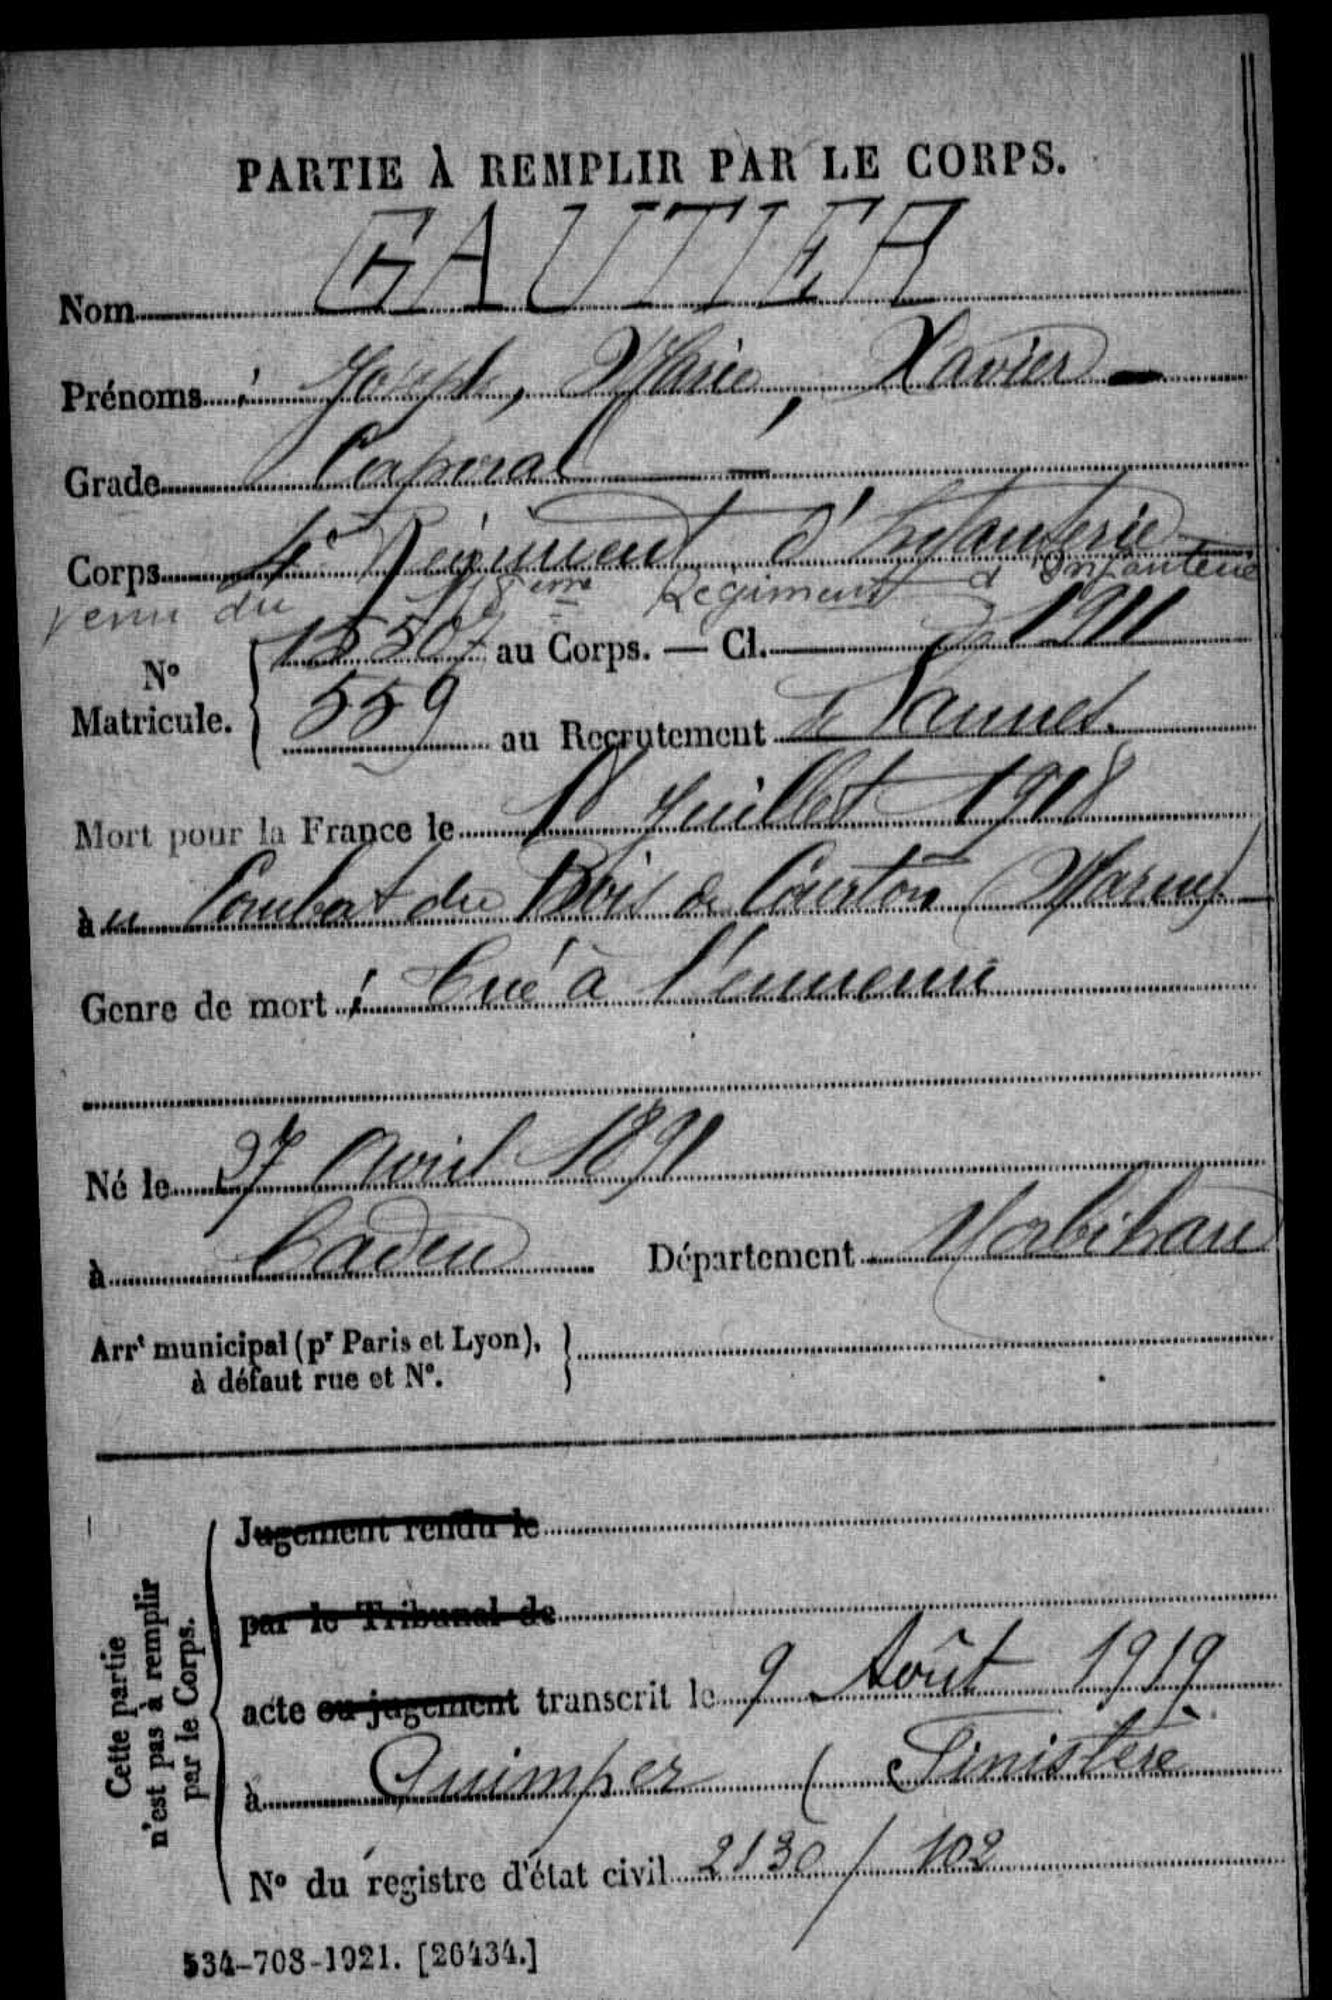 PARTIE À REMPLIR PAR LE CORPS.
Nom GAUTIER
Prénoms : Joseph, Marie, Xavier —
Grade Caporal —
Corps 4e Régiment d'Infanterie
venu du 118ème Régiment d'Infanterie
No Matricule. { 15507 au Corps. — Cl. 1911
559 au Recrutement de Vannes.
Mort pour la France le 18 Juillet 1918
au Combat du Bois de Courton (Marne) —
Genre de mort : Tué à l'ennemi
Né le 27 Avril 1891
à Caden Département Morbihan
Arrt municipal (pr Paris et Lyon),
à défaut rue et No.
Cette partie
n'est pas à remplir
par le Corps.
Jugement rendu le
par le Tribunal de
acte ou jugement transcrit le 9 Août 1919
à Quimper ( Finistère
No du registre d'état civil 2130 / 102
534-708-1921. [26434.]